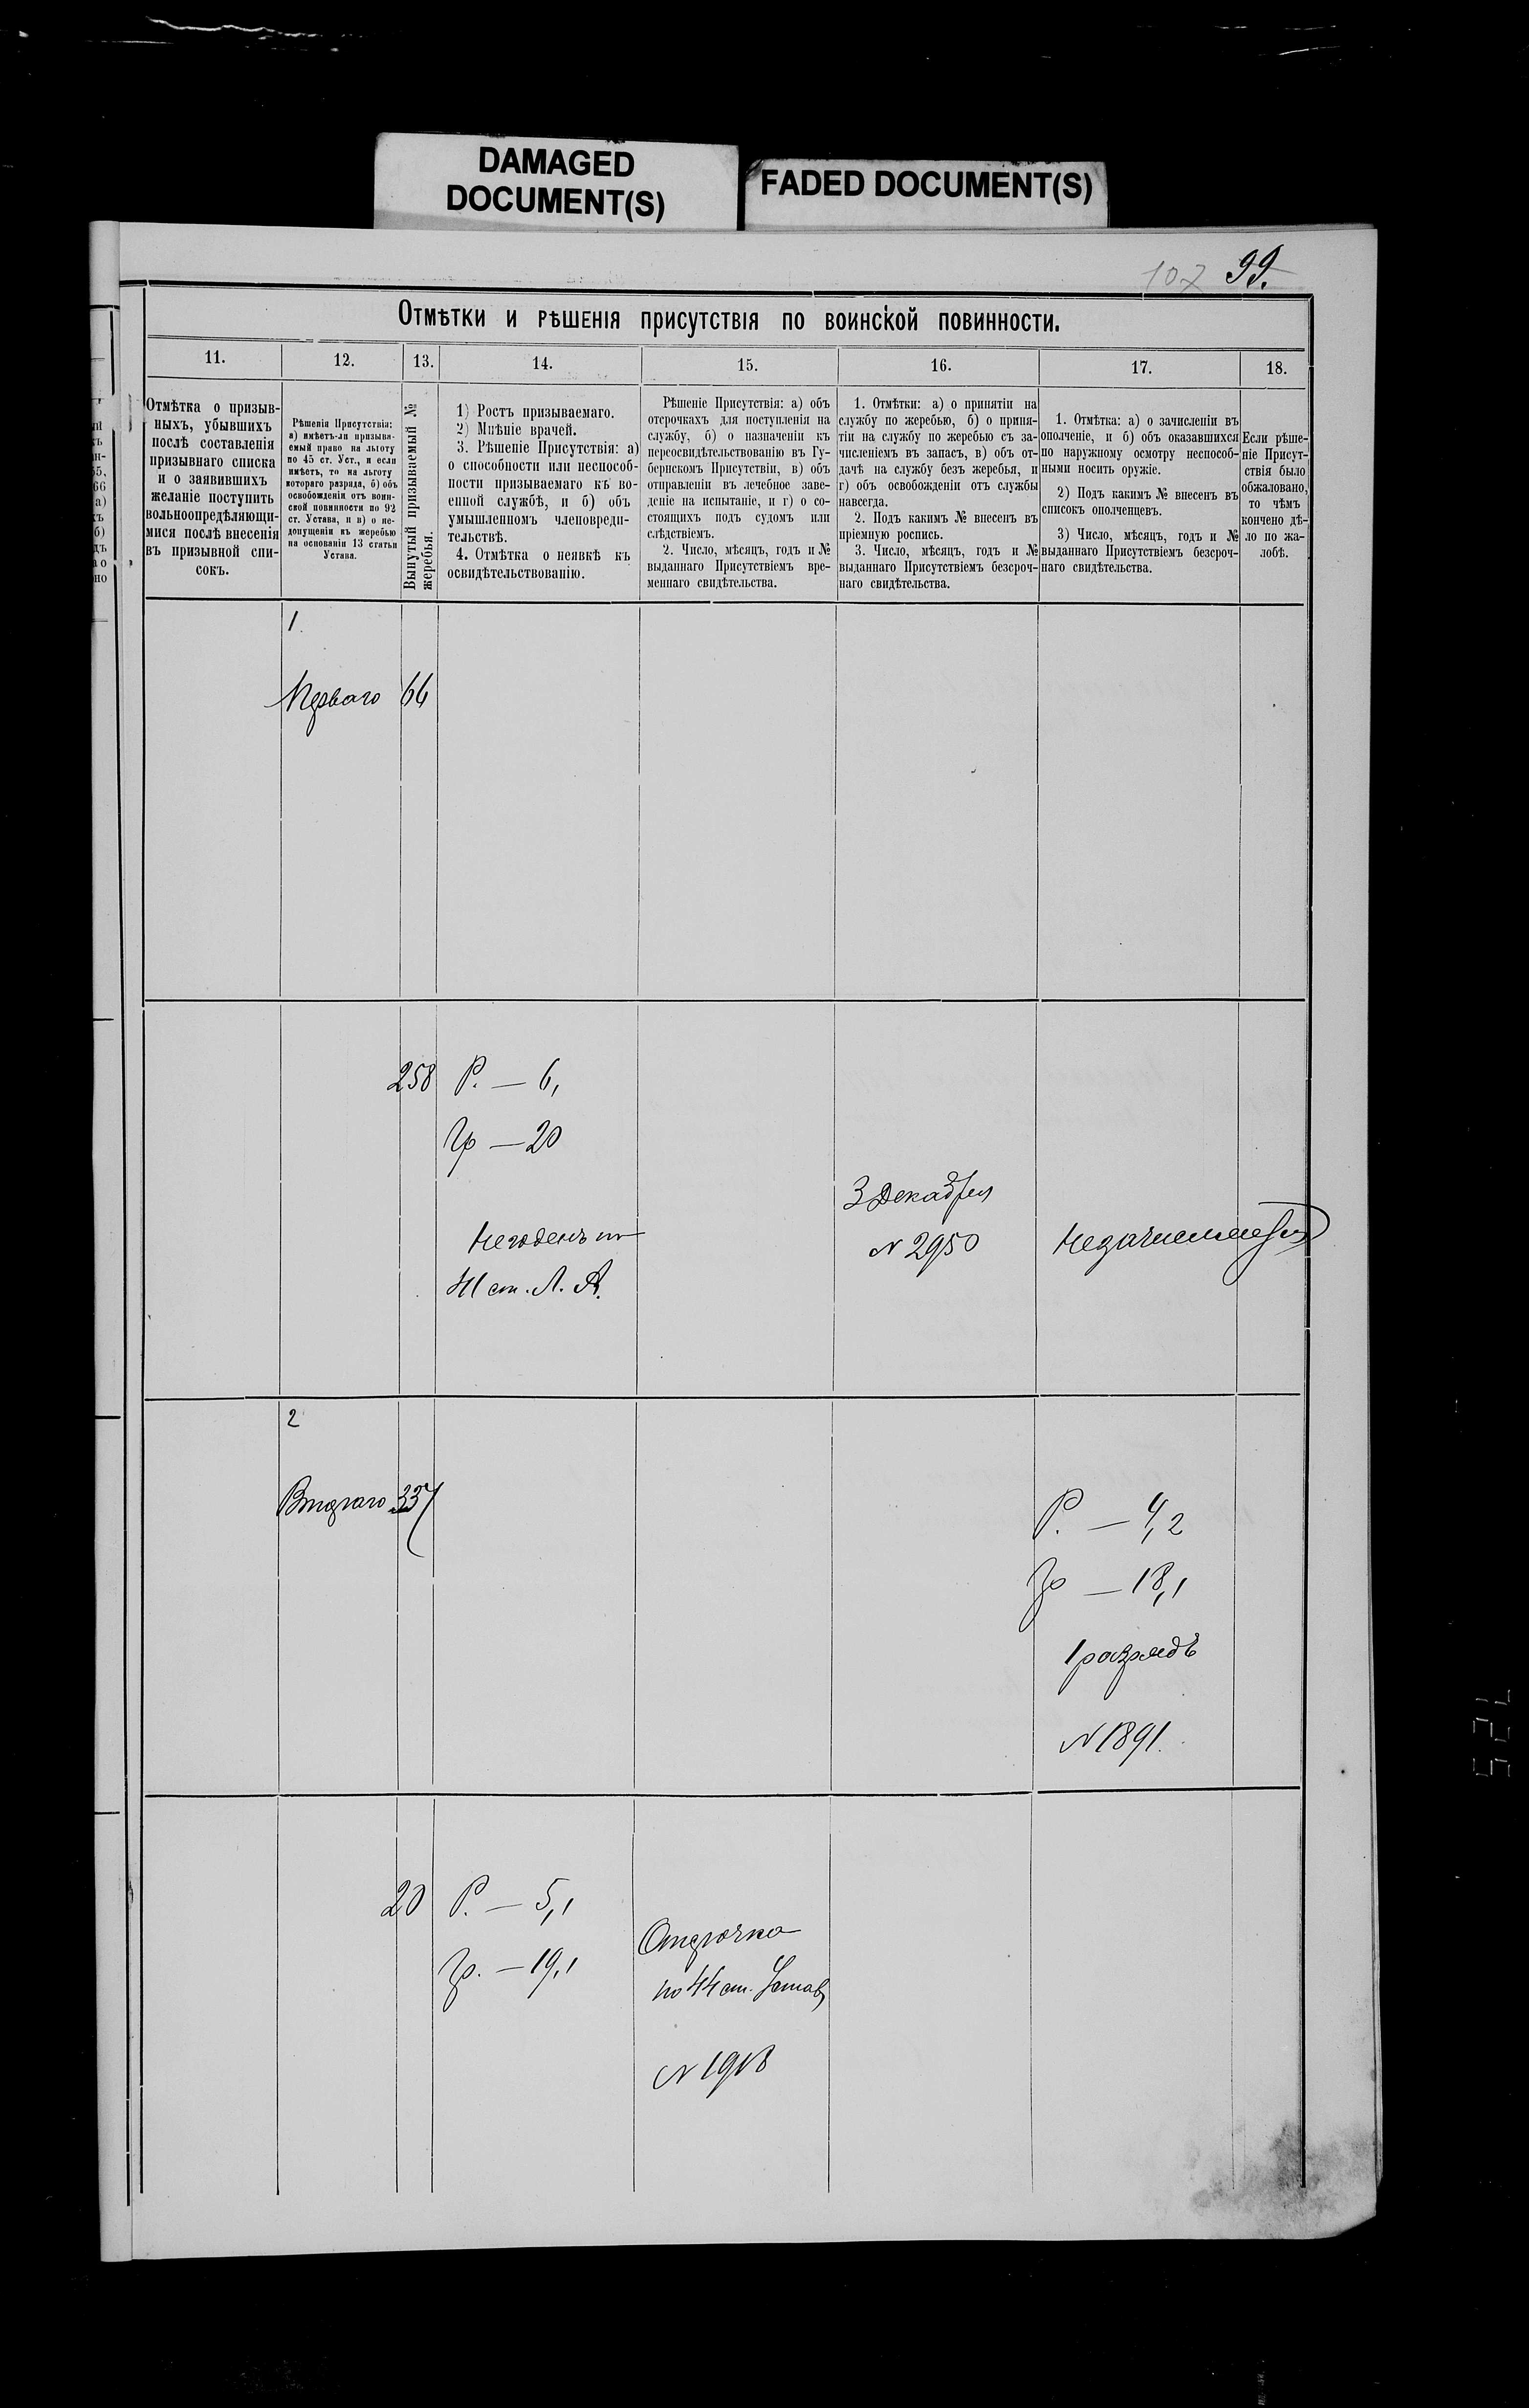 DAMAGED
DOCUMENT(S)
FADED DOCUMENT(S)
107 99.
Отмѣтки и рѣшенія присутствія по воинской повинности.
11. 12. 13. 14. 15. 16. 17. 18.
Отмѣтка о призыв-
ныхъ, убывшихъ
послѣ составленія
призывнаго списка
и о заявившихъ
желаніе поступить
вольноопредѣляющи-
мися послѣ внесенія
въ призывной спи-
сокъ.
Рѣшенія Присутствія:
а) имѣетъ-ли призыва-
емый право на льготу
по 45 ст. Уст., и если
имѣетъ, то на льготу
котораго разряда, б) объ
освобожденіи отъ воин-
ской повинности по 92
ст. Устава, и в) о не-
допущеніи къ жеребью
на основаніи 13 статьи
Устава.
Вынутый призываемый №
жеребья.
1) Ростъ призываемаго.
2) Мнѣніе врачей.
3. Рѣшеніе Присутствія: а)
о способности или неспособ-
ности призываемаго къ во-
енной службѣ, и б) объ
умышленномъ членовреди-
тельствѣ.
4. Отмѣтка о неявкѣ къ
освидѣтельствованію.
Рѣшеніе Присутствія: а) объ
отсрочкахъ для поступленія на
службу, б) о назначеніи къ
переосвидѣтельствованію въ Гу-
бернскомъ Присутствіи, в) объ
отправленіи въ лечебное заве-
деніе на испытаніе, и г) о со-
стоящихъ подъ судомъ или
слѣдствіемъ.
2. Число, мѣсяцъ, годъ и №
выданнаго Присутствіемъ вре-
меннаго свидѣтельства.
1. Отмѣтки: а) о принятіи на
службу по жеребью, б) о приня-
тіи на службу по жеребью съ за-
численіемъ въ запасъ, в) объ от-
дачѣ на службу безъ жеребья, и
г) объ освобожденіи отъ службы
навсегда.
2. Подъ какимъ № внесенъ въ
пріемную роспись.
3. Число, мѣсяцъ, годъ и №
выданнаго Присутствіемъ безсроч-
наго свидѣтельства.
1. Отмѣтка: а) о зачисленіи въ
ополченіе, и б) объ оказавшихся
по наружному осмотру неспособ-
ными носить оружіе.
2) Подъ какимъ № внесенъ въ
списокъ ополченцевъ.
3) Число, мѣсяцъ, годъ и №
выданнаго Присутствіемъ безсроч-
наго свидѣтельства.
Если рѣше-
ніе Присут-
ствія было
обжаловано,
то чѣмъ
кончено дѣ-
ло по жа-
лобѣ.
1
Перваго 66
258 Р. — 6,
Гр — 20
3 Декабря
Негоденъ по
N 2950
41 ст. Л. А.
2
Втораго 337
Р. — 4,2
Гр — 18,1
1 разрядъ
N 1891.
20 Р. — 5,1
Гр. — 19,1
Отсрочка
по 44 ст. Устав
N 1918
725